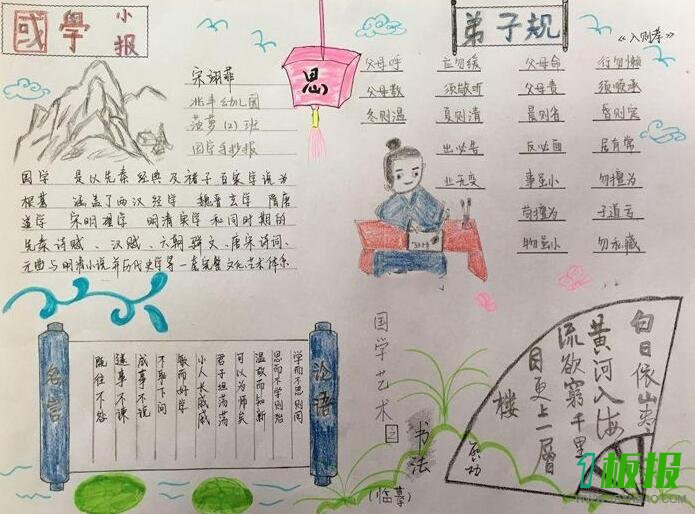 國學小报
宋诩菲
北丰幼儿园
菠萝(2)班
国学手抄报
国学 是以先秦经典及诸子百家学说为
根基 涵盖了两汉经学 魏晋玄学 隋唐
道学 宋明理学 明清实学和同时期的
先秦诗赋、汉赋、六朝骈文、唐宋诗词、
元曲与明清小说并历代史学等一套完整文化艺术体系
思
弟子规
《入则孝》
父母呼 应勿缓 父母命 行勿懒
父母教 须敬听 父母责 须顺承
冬则温 夏则清 晨则省 昏则定
出必告 反必面 居有常
业无变 事虽小 勿擅为
苟擅为 子道亏
物虽小 勿私藏
论语
学而不思则罔
思而不学则殆
温故而知新
可以为师矣
君子坦荡荡
小人长戚戚
敏而好学
不耻下问
成事不说
遂事不谏
既往不咎
名言
国学艺术
书法
(临摹)
白日依山尽
黄河入海
流欲窮千里
目更上一層
楼
启功
板报